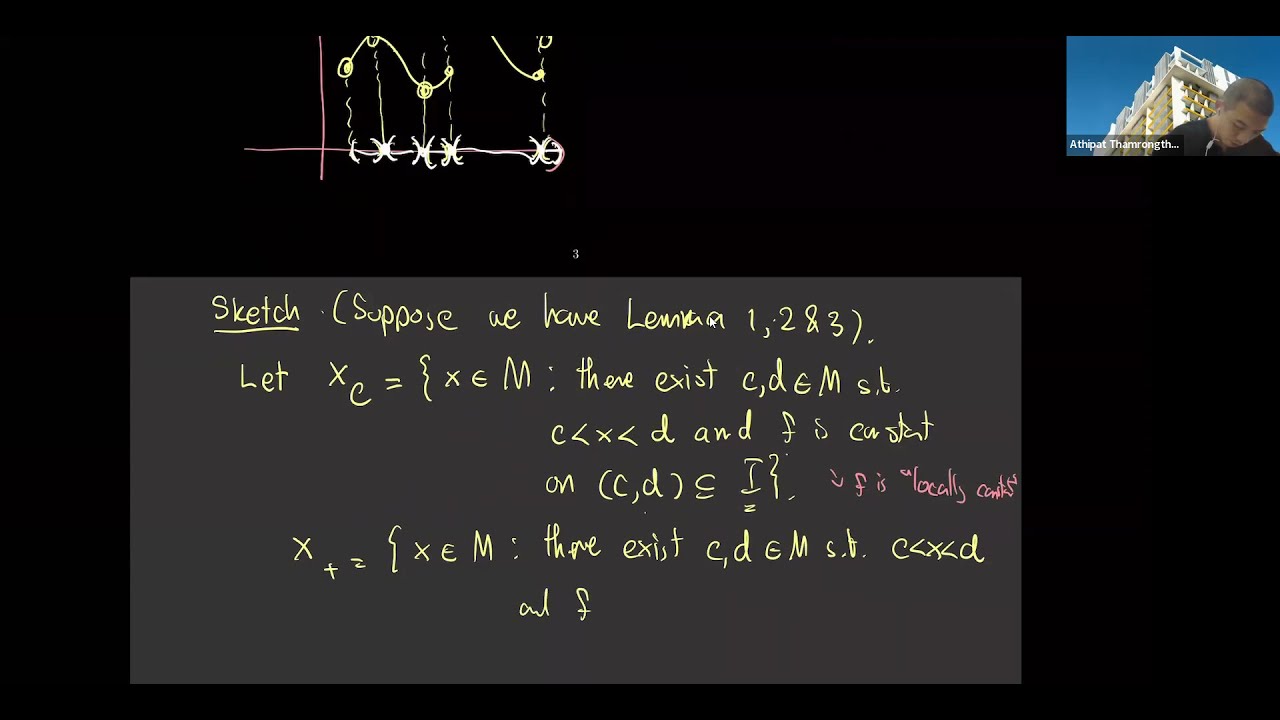 Athipat Thamrongth...
3
Sketch (Suppose we have Lemma 1, 2 & 3).
Let X_c = { x ∈ M : there exist c, d ∈ M s.t.
c < x < d and f is constant
on (c, d) ⊆ I }.
f is "locally constant"
X_+ = { x ∈ M : there exist c, d ∈ M s.t. c < x < d
and f